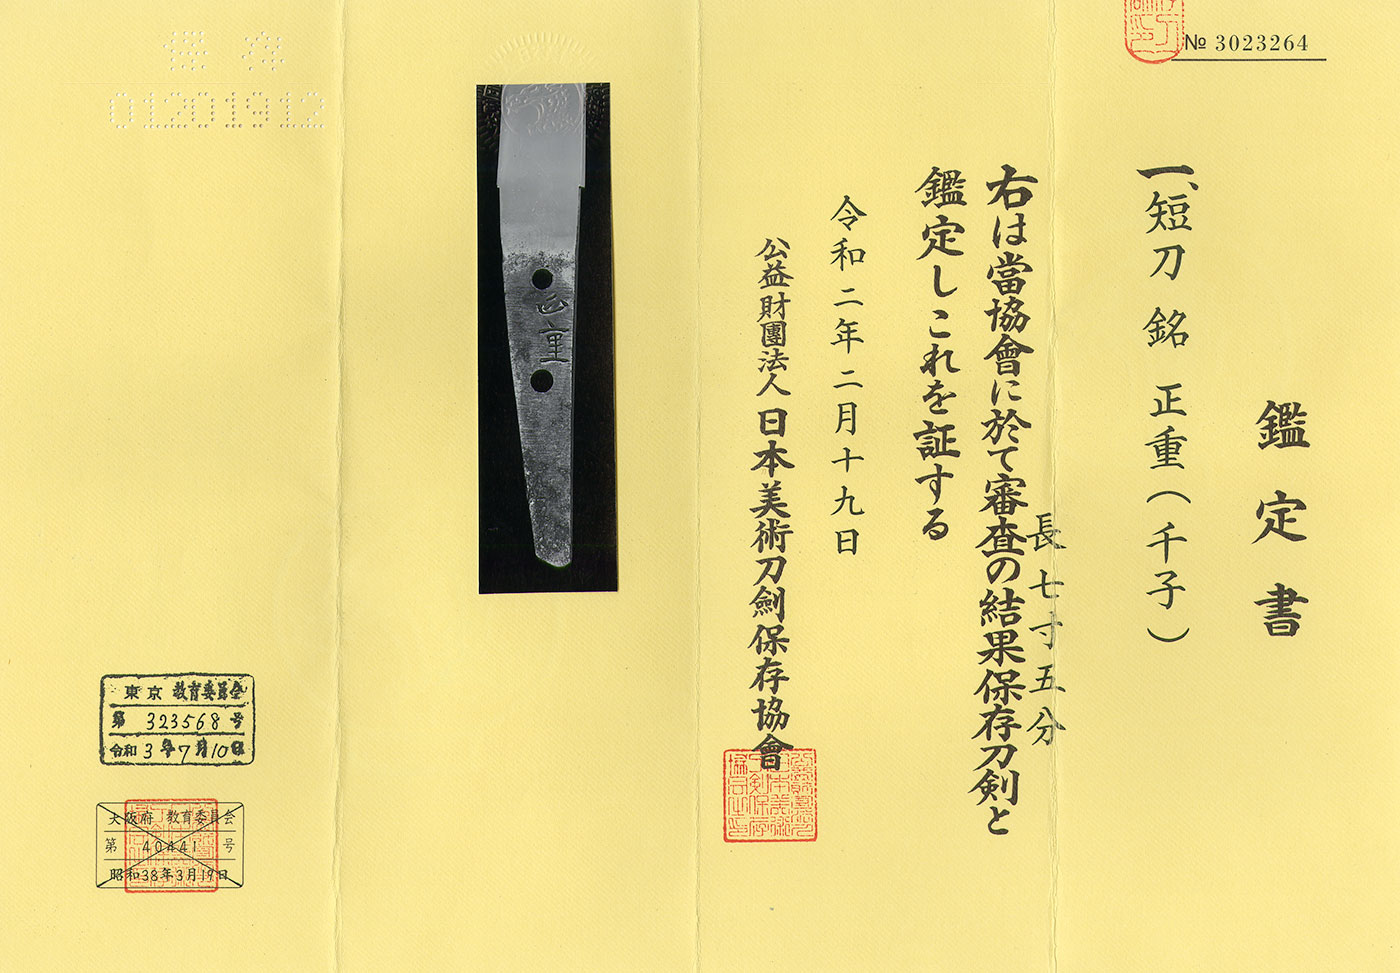 № 3023264
鑑定書
一、短刀 銘 正重(千子)
長七寸五分
右は當協會に於て審査の結果保存刀剣と
鑑定しこれを証する
令和二年二月十九日
公益財團法人 日本美術刀劍保存協會
正重
保存
01201912
東京 教育委員会
第 323568 号
令和 3年 7月 10日
大阪府 教育委員会
第 40441 号
昭和38年3月19日